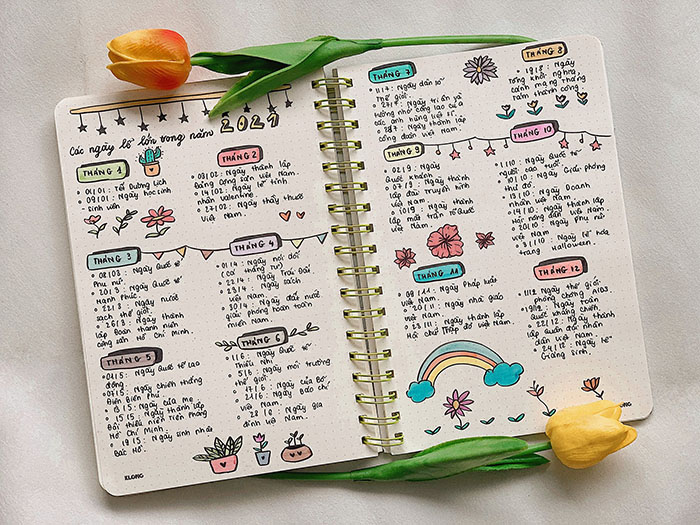 Các ngày lễ lớn trong năm 2021
THÁNG 1
01/01: Tết Dương Lịch
09/01: Ngày học sinh
sinh viên
THÁNG 2
03/02: Ngày thành lập
Đảng Cộng sản Việt Nam.
14/02: Ngày lễ tình
nhân Valentine
27/02: Ngày thầy thuốc
Việt Nam.
THÁNG 3
08/03: Ngày Quốc tế
Phụ nữ.
20/3: Ngày Quốc tế
Hạnh Phúc.
22/3: Ngày nước
sạch thế giới.
26/3: Ngày thành
lập Đoàn thanh niên
cộng sản Hồ Chí Minh.
THÁNG 4
01/4: Ngày nói dối
(cá tháng tư)
22/4: Ngày Trái Đất
21/4: Ngày sách
Việt Nam.
30/4: Ngày giải phóng hoàn toàn
miền Nam.
THÁNG 5
01/5: Ngày Quốc tế Lao
động
07/5: Ngày chiến thắng
Điện Biên Phủ.
13/5: Ngày của mẹ
15/5: Ngày thành lập
Đội thiếu niên Tiền Phong
Hồ Chí Minh.
19/5: Ngày sinh nhật
Bác Hồ.
THÁNG 6
1/6: Ngày Quốc tế
Thiếu Nhi
5/6: Ngày môi trường
thế giới.
17/6: Ngày của Bố
21/6: Ngày Báo chí
Việt Nam.
28/6: Ngày gia
đình Việt Nam.
KLONG
THÁNG 7
11/7: Ngày dân số
Thế giới.
27/7: Ngày tri ân và
tưởng nhớ công lao của
các anh hùng liệt sĩ.
28/7: Ngày thành lập
công đoàn Việt Nam.
THÁNG 8
19/8: Ngày
Tổng khởi nghĩa
cách mạng tháng
tám thành công.
THÁNG 9
02/9: Ngày
Quốc khánh
07/9: Ngày thành
lập đài truyền hình
Việt Nam
10/9: Ngày thành
lập mặt trận tổ quốc
Việt Nam.
THÁNG 10
1/10: Ngày Quốc tế
người cao tuổi
10/10: Ngày Giải phóng
thủ đô.
13/10: Ngày Doanh
nhân Việt Nam.
14/10: Ngày thành lập
Hội nông dân Việt Nam.
20/10: Ngày phụ nữ
Việt Nam
31/10: Ngày lễ hóa
trang Halloween.
THÁNG 11
09/11: Ngày Pháp luật
Việt Nam.
20/11: Ngày nhà giáo
Việt Nam.
23/11: Ngày thành lập
Hội chữ thập đỏ Việt Nam.
THÁNG 12
1/12: Ngày thế giới
phòng chống AIDS.
19/12: Ngày toàn
quốc kháng chiến.
22/12: Ngày thành
lập quân đội nhân
dân Việt Nam.
24/12: Ngày lễ
Giáng Sinh.
KLONG